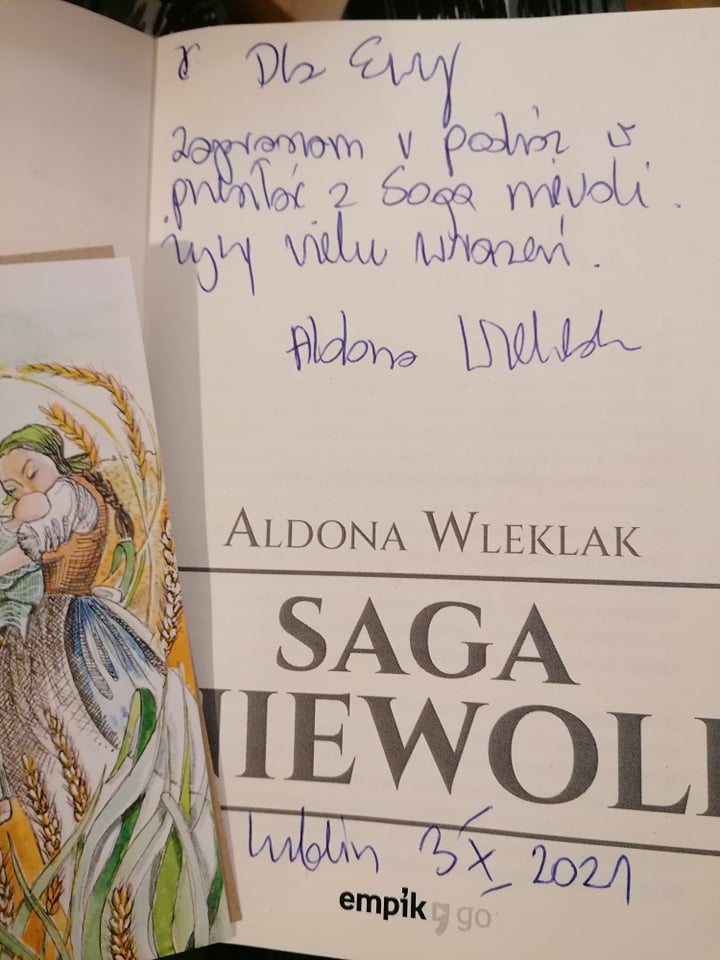 Dla Ewy
zapraszam w podróż w
przeszłość z Sagą niewoli.
Życzę wielu wrażeń.
Aldona Wleklak
ALDONA WLEKLAK
SAGA
NIEWOLI
Lublin 3 X 2021
empik go